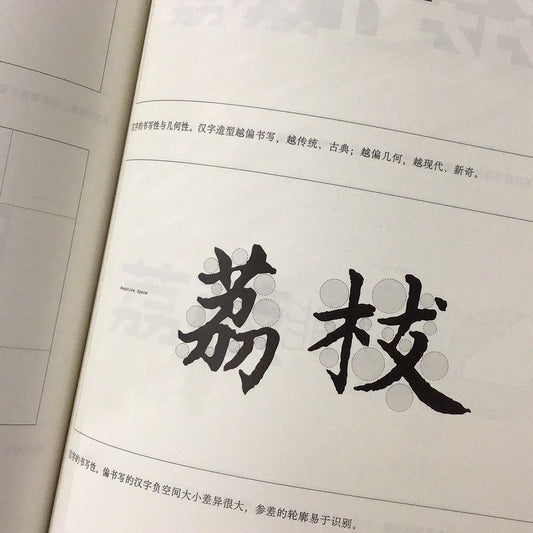 汉字的书写性与几何性，汉字造型越偏书写，越传统、古典；越偏几何，越现代、新奇。
Negative Space
荔枝
汉字的书写性，偏书写的汉字负空间大小差异很大，参差的轮廓易于识别。